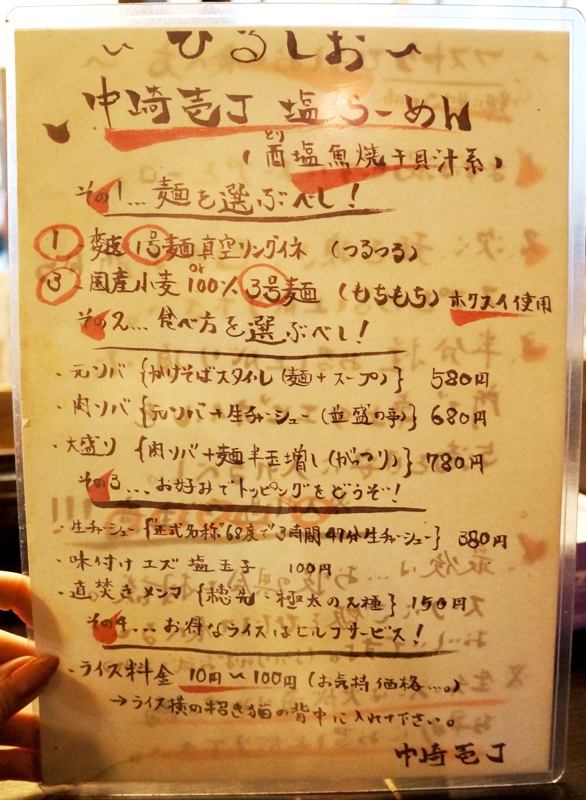 〜ひるしお〜
中崎壱丁 塩らーめん
とり
(酉塩魚焼干貝汁系)
その1...麺を選ぶべし!
1 1号麺真空リングイネ (つるつる)
or
3 国産小麦100% 3号麺 (もちもち) ホクスイ使用
その2...食べ方を選ぶべし!
・元ソバ {かけそばスタイル(麺+スープ)} 580円
・肉ソバ {元ソバ+生チャーシュー(並盛の事)} 680円
・大盛り {肉ソバ+麺半玉増し(がっつり)} 780円
その3...お好みでトッピングをどうぞ!
・生チャーシュー{正式名称"68度で3時間47分生チャーシュー} 380円
・味付け エズ 塩玉子 100円
・直焚きメンマ {穂先・極太の2種} 150円
その4...お得なライスはセルフサービス!
・ライス料金 10円〜100円 (お気持価格...。)
→ライス横の招き猫の背中に入れて下さい。
中崎壱丁